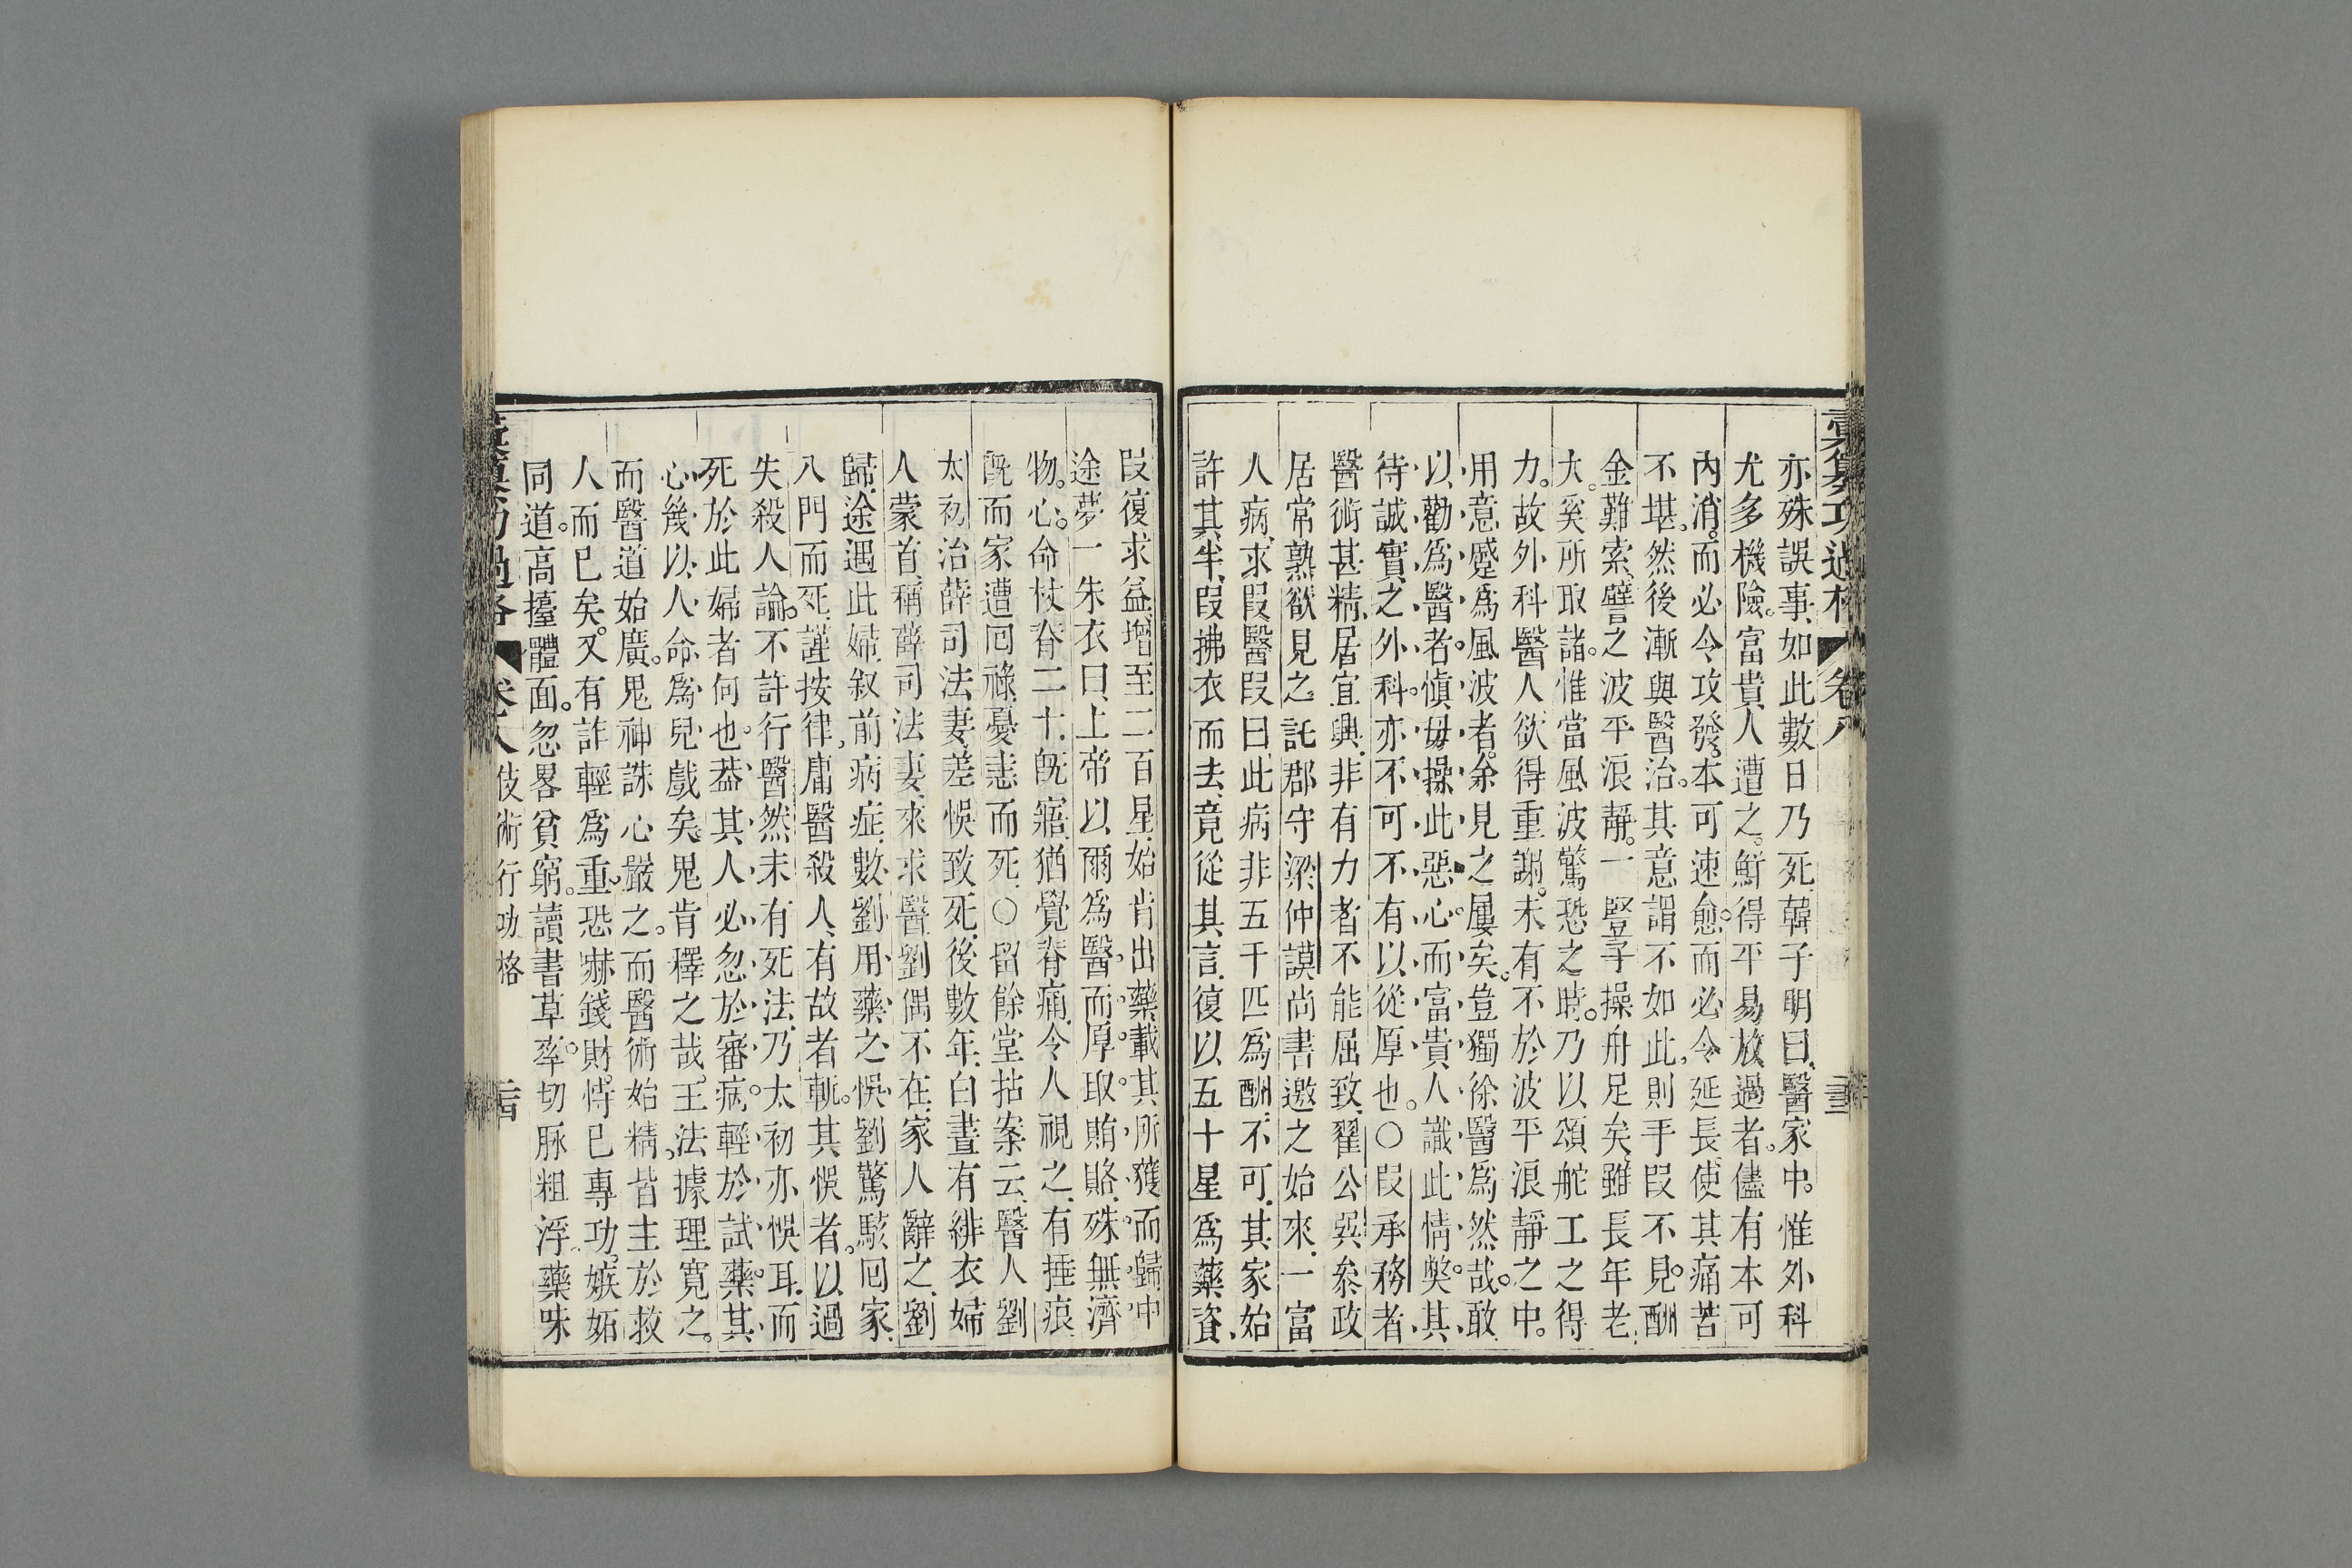 彙纂功過格 卷八
亦殊誤事、如此數日乃死、韓子明曰、醫家中。惟外科
尤多機險。富貴人遭之。鮮得平易放過者。儘有本可
內消。而必令攻發。本可速愈。而必令延長、使其痛苦
不堪。然後漸與醫治。其意謂不如此、則手叚不見。酬
金難索、譬之波平浪靜。一豎子操舟足矣、雖長年老
大。奚所取諸。惟當風波驚恐之時。乃以頌舵工之得
力。故外科醫人欲得重謝。未有不於波平浪靜之中。
用意蹙爲風波者。余見之屢矣。豈獨徐醫爲然哉。敢
以勸爲醫者。愼毋操此惡心。而富貴人識此情獘。其
待誠實之外科。亦不可不有以從厚也。〇叚承務者
醫術甚精、居宜興、非有力者不能屈致、翟公巽叅政
居常熟欲見之託郡守梁仲謨尚書邀之始來、一富
人病、求叚醫叚曰、此病非五千匹爲酬、不可、其家始
許其半、叚拂衣而去、竟從其言、復以五十星爲藥資、
叚復求益、增至二百星、始肯出藥、載其所獲而歸、中
途夢一朱衣曰、上帝以爾爲醫、而厚取賄賂、殊無濟
物。心。命杖脊二十、旣寤、猶覺脊痛、令人視之、有捶痕、
旣而家遭囘祿、憂恚而死、〇留餘堂拈案云、醫人劉
太初治薛司法妻、差悞致死、後數年、白晝有緋衣婦
人蒙首、稱薛司法妻、來求醫、劉偶不在、家人辭之、劉
歸、途遇此婦、叙前病症、數劉用藥之悞、劉驚駭囘家、
入門而死、謹按律、庸醫殺人、有故者輒。其悞者。以過
失殺人論。不許行醫、然未有死法、乃太初亦悞耳、而
死於此婦者何也。葢其人必忽於審病。輕於試藥。其
心幾以人命爲兒戲矣、鬼肯釋之哉。王法據理寛之。
而醫道始廣。鬼神誅心嚴之。而醫術始精。皆主於救
人而已矣。又有詐輕爲重。恐嚇錢財。恃已專功。嫉妬
同道。高擡體面。忽畧貧窮。讀書草率。切脉粗浮。藥味
彙纂功過格 卷八 伎術行功格